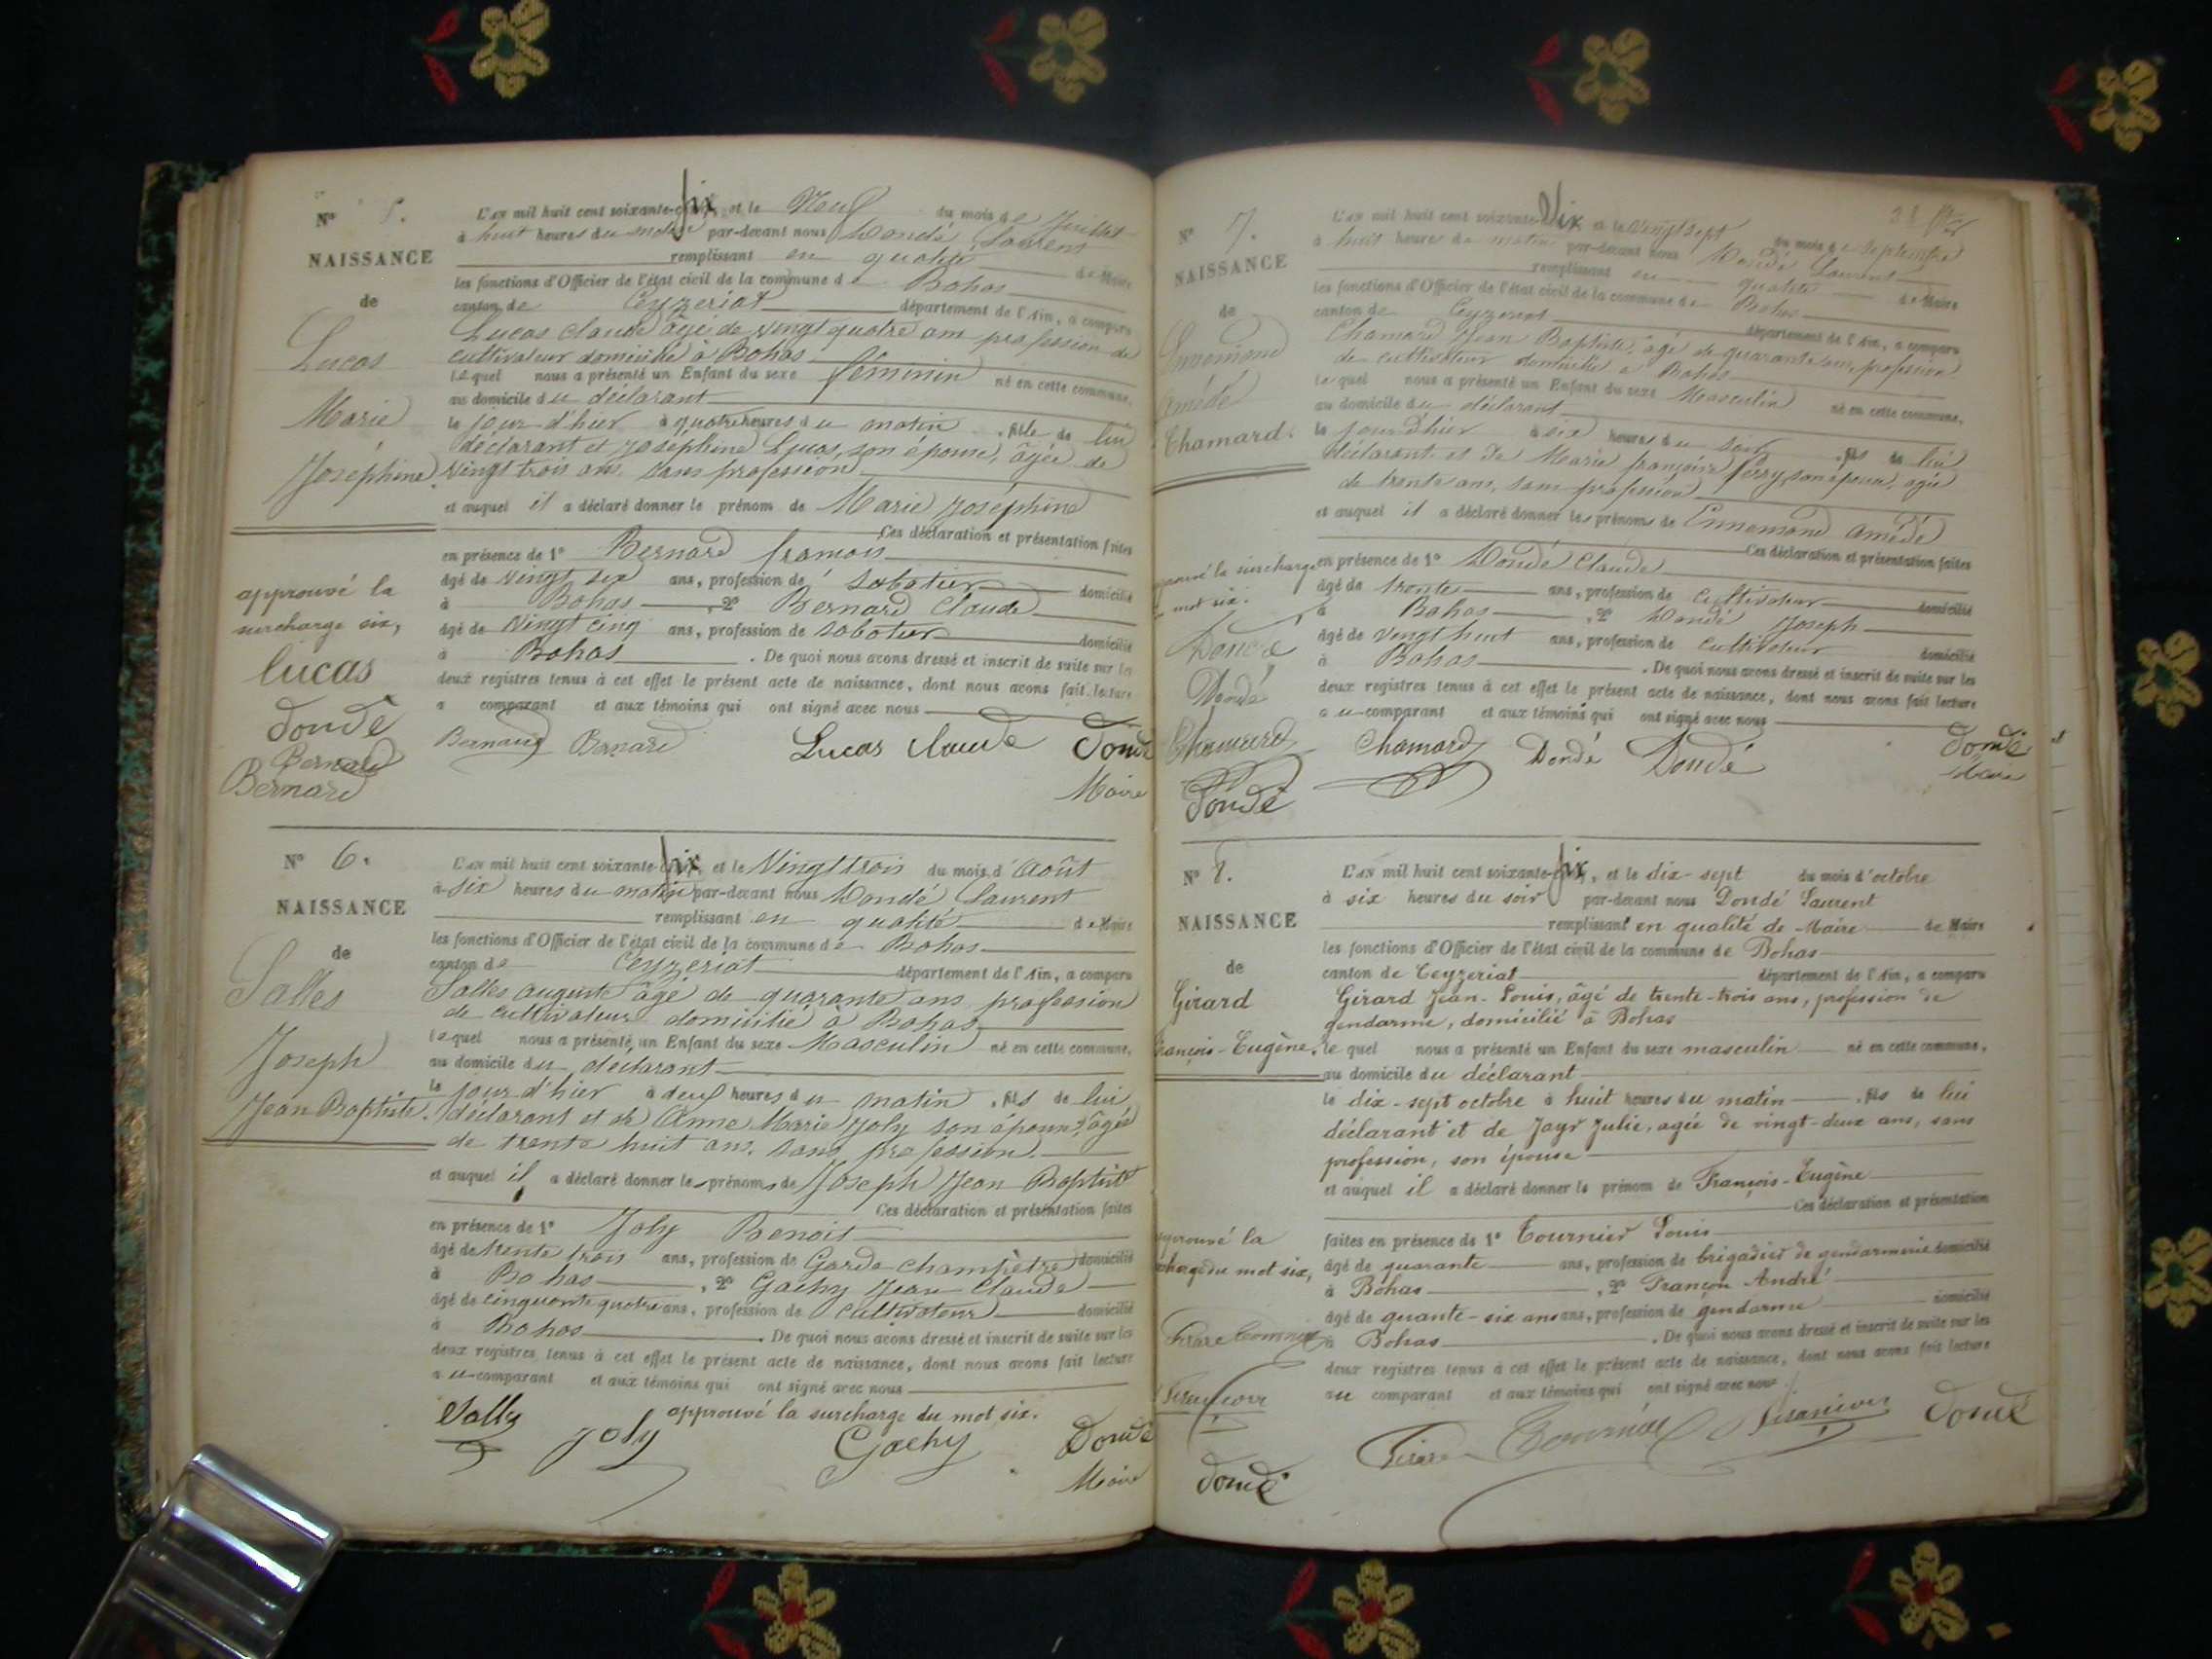 N° 5.
NAISSANCE
de
Lucas
Marie
Joséphine
L'an mil huit cent soixante-six et le Neuf du mois de Juillet
à huit heures du matin par-devant nous Dondé Laurent
remplissant en qualité de Maire
les fonctions d'Officier de l'état civil de la commune de Bohas
canton de Ceyzeriat département de l'Ain, a comparu
Lucas Claude âgé de vingt quatre ans profession de
cultivateur domicilié à Bohas
lequel nous a présenté un Enfant du sexe féminin né en cette commune,
au domicile du déclarant
le jour d'hier à quatre heures du matin, fille de lui
déclarant et Joséphine Lucas, son épouse, âgée de
vingt trois ans, sans profession
et auquel il a déclaré donner le prénom de Marie Joséphine
Ces déclaration et présentation faites
en présence de 1° Bernard francois
âgé de vingt six ans, profession de sabotier domicilié
à Bohas, 2° Bernard Claude
âgé de Vingt cinq ans, profession de sabotier domicilié
à Bohas. De quoi nous avons dressé et inscrit de suite sur les
deux registres tenus à cet effet le présent acte de naissance, dont nous avons fait lecture
a comparant et aux témoins qui ont signé avec nous
approuvé la
surcharge six,
lucas
Dondé
Bernard
Bernard
Bernard Bernard Lucas Claude Dondé
Maire
N° 6.
NAISSANCE
de
Salles
Joseph
Jean Baptiste.
L'an mil huit cent soixante-six et le Vingt trois du mois d'Août
à six heures du matin par-devant nous Dondé Laurent
remplissant en qualité de Maire
les fonctions d'Officier de l'état civil de la commune de Bohas
canton de Ceyzeriat département de l'Ain, a comparu
Salles auguste âgé de quarante ans profession
de cultivateur domicilié à Bohas
lequel nous a présenté un Enfant du sexe Masculin né en cette commune,
au domicile du déclarant
le jour d'hier à deux heures du matin, fils de lui
déclarant et de Anne Marie Joly son épouse, âgée
de trente huit ans, sans profession.
et auquel il a déclaré donner les prénoms de Joseph Jean Baptiste
Ces déclaration et présentation faites
en présence de 1° Joly Benoit
âgé de trente trois ans, profession de Garde champêtre domicilié
à Bohas, 2° Gachy Jean Claude
âgé de cinquante quatre ans, profession de cultivateur domicilié
à Bohas. De quoi nous avons dressé et inscrit de suite sur les
deux registres tenus à cet effet le présent acte de naissance, dont nous avons fait lecture
au comparant et aux témoins qui ont signé avec nous
approuvé la surcharge du mot six.
Salles Joly Gachy Dondé
Maire
N° 7.
NAISSANCE
de
Ennemond
Amédé
Chamard.
L'an mil huit cent soixante-six et le vingt sept du mois de Septembre
à huit heures du matin par-devant nous Dondé Laurent
remplissant en qualité de Maire
les fonctions d'Officier de l'état civil de la commune de Bohas
canton de Ceyzeriat département de l'Ain, a comparu
Chamard Jean Baptiste, âgé de quarante ans, profession
de cultivateur domicilié à Bohas
lequel nous a présenté un Enfant du sexe Masculin né en cette commune,
au domicile du déclarant
le jour d'hier à six heures du soir, fils de lui
déclarant et de Marie françoise son épouse, agée
de trente ans, sans profession
et auquel il a déclaré donner les prénoms de Ennemond Amédé
Ces déclaration et présentation faites
en présence de 1° Dondé Claude
âgé de trente ans, profession de Cultivateur domicilié
à Bohas, 2° Dondé Joseph
âgé de vingt huit ans, profession de Cultivateur domicilié
à Bohas. De quoi nous avons dressé et inscrit de suite sur les
deux registres tenus à cet effet le présent acte de naissance, dont nous avons fait lecture
au comparant et aux témoins qui ont signé avec nous
la surcharge
mot six.
Dondé
Dondé
Chamard
Dondé
Chamard Dondé Dondé Dondé
Maire
N° 8.
NAISSANCE
de
Girard
François-Eugène.
L'an mil huit cent soixante-six, et le dix-sept du mois d'octobre
à six heures du soir par-devant nous Dondé Laurent
remplissant en qualité de Maire de Maire
les fonctions d'Officier de l'état civil de la commune de Bohas
canton de Ceyzeriat département de l'Ain, a comparu
Girard Jean-Louis, âgé de trente-trois ans, profession de
gendarme, domicilié à Bohas
lequel nous a présenté un Enfant du sexe masculin né en cette commune,
au domicile du déclarant
le dix-sept octobre à huit heures du matin, fils de lui
déclarant et de Jayr Julie, agée de vingt-deux ans, sans
profession, son épouse
et auquel il a déclaré donner le prénom de François-Eugène
Ces déclaration et présentation
faites en présence de 1° Tournier Louis
âgé de quarante ans, profession de brigadier de gendarmerie domicilié
à Bohas, 2° Françon André
âgé de quante-six ans ans, profession de gendarme domicilié
à Bohas. De quoi nous avons dressé et inscrit de suite sur les
deux registres tenus à cet effet le présent acte de naissance, dont nous avons fait lecture
au comparant et aux témoins qui ont signé avec nous
la
du mot six,
Dondé
Tournier Dondé